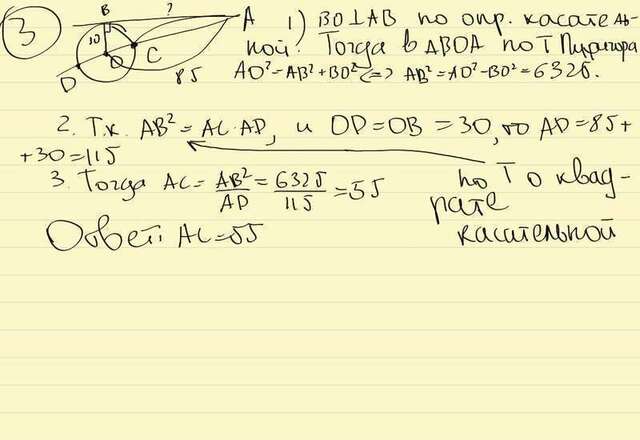 3
B ? A
30
O C
D 85
1) BO⊥AB по опр. касатель-
ной. Тогда в ΔBOA по Т Пифагора
AO²=AB²+BO² <=> AB²=AO²-BO²=6325.
2. Т.к. AB²=AC·AD, и OD=OB=30, то AD=85+
+30=115
3. Тогда AC=AB²/AD=6325/115=55
по Т о квад-
рате
касательной
Ответ: AC=55